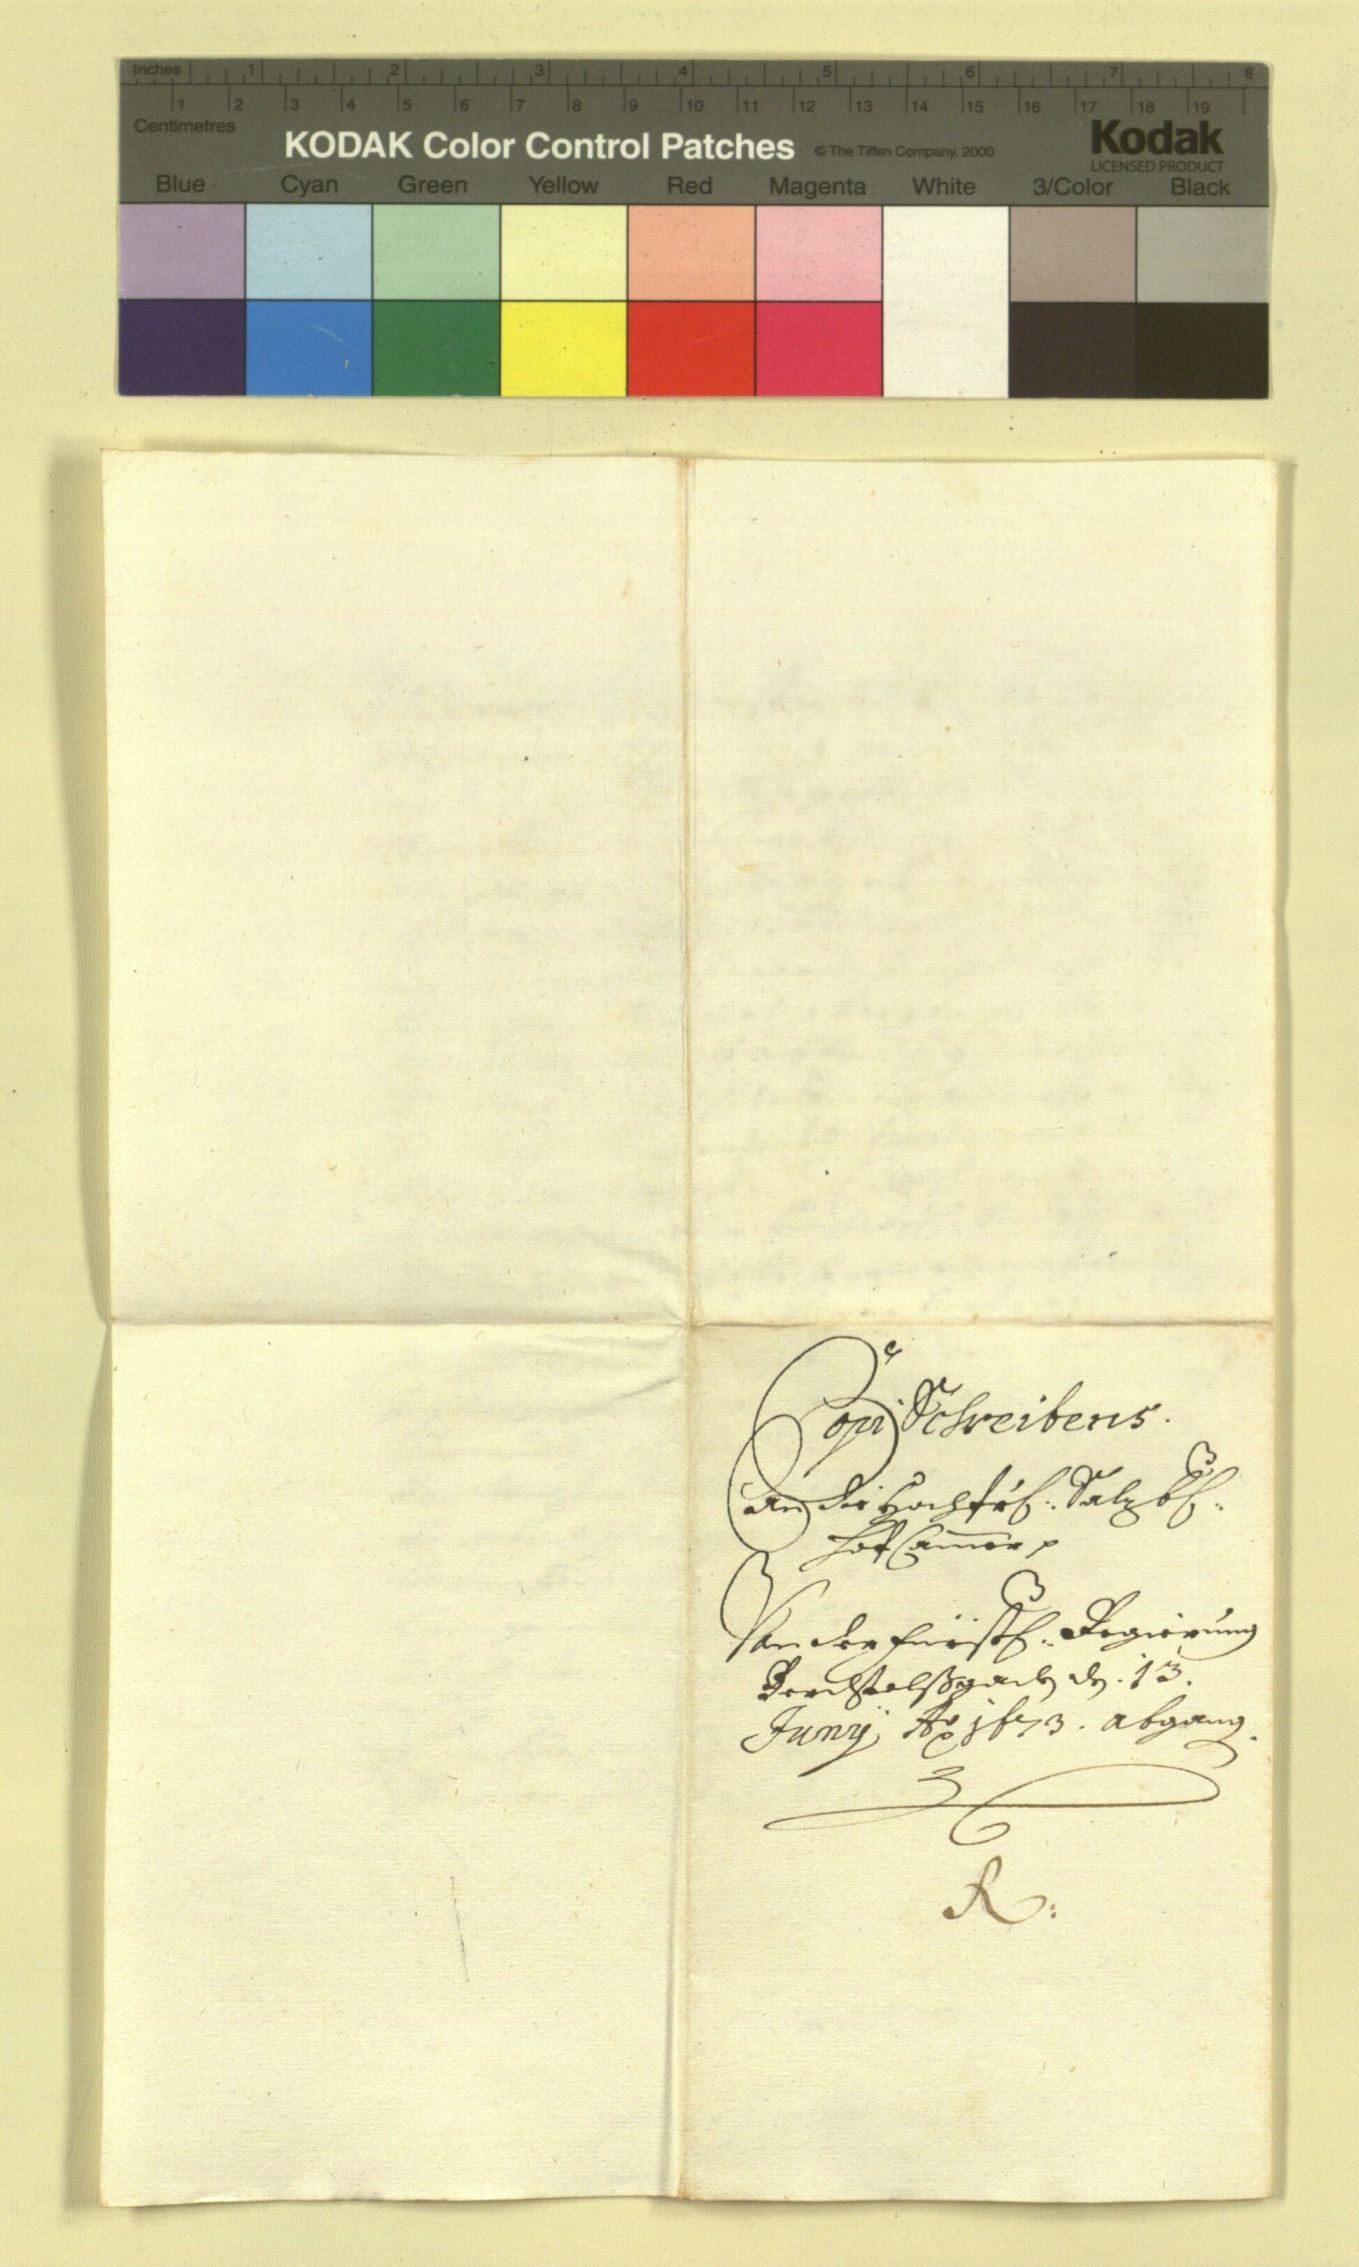 Inches 1 2 3 4 5 6 7 8
1 2 3 4 5 6 7 8 9 10 11 12 13 14 15 16 17 18 19
Centimetres
KODAK Color Control Patches © The Tiffen Company, 2000 Kodak
LICENSED PRODUCT
Blue Cyan Green Yellow Red Magenta White 3/Color Black
Copi Schreibens.
an die Hochfrl: Salzbl:
Hof Camer
Von der Fürstl: Regierung
Berchtelßgaden 13.
Junÿ Ao 1673. abgang.
R: